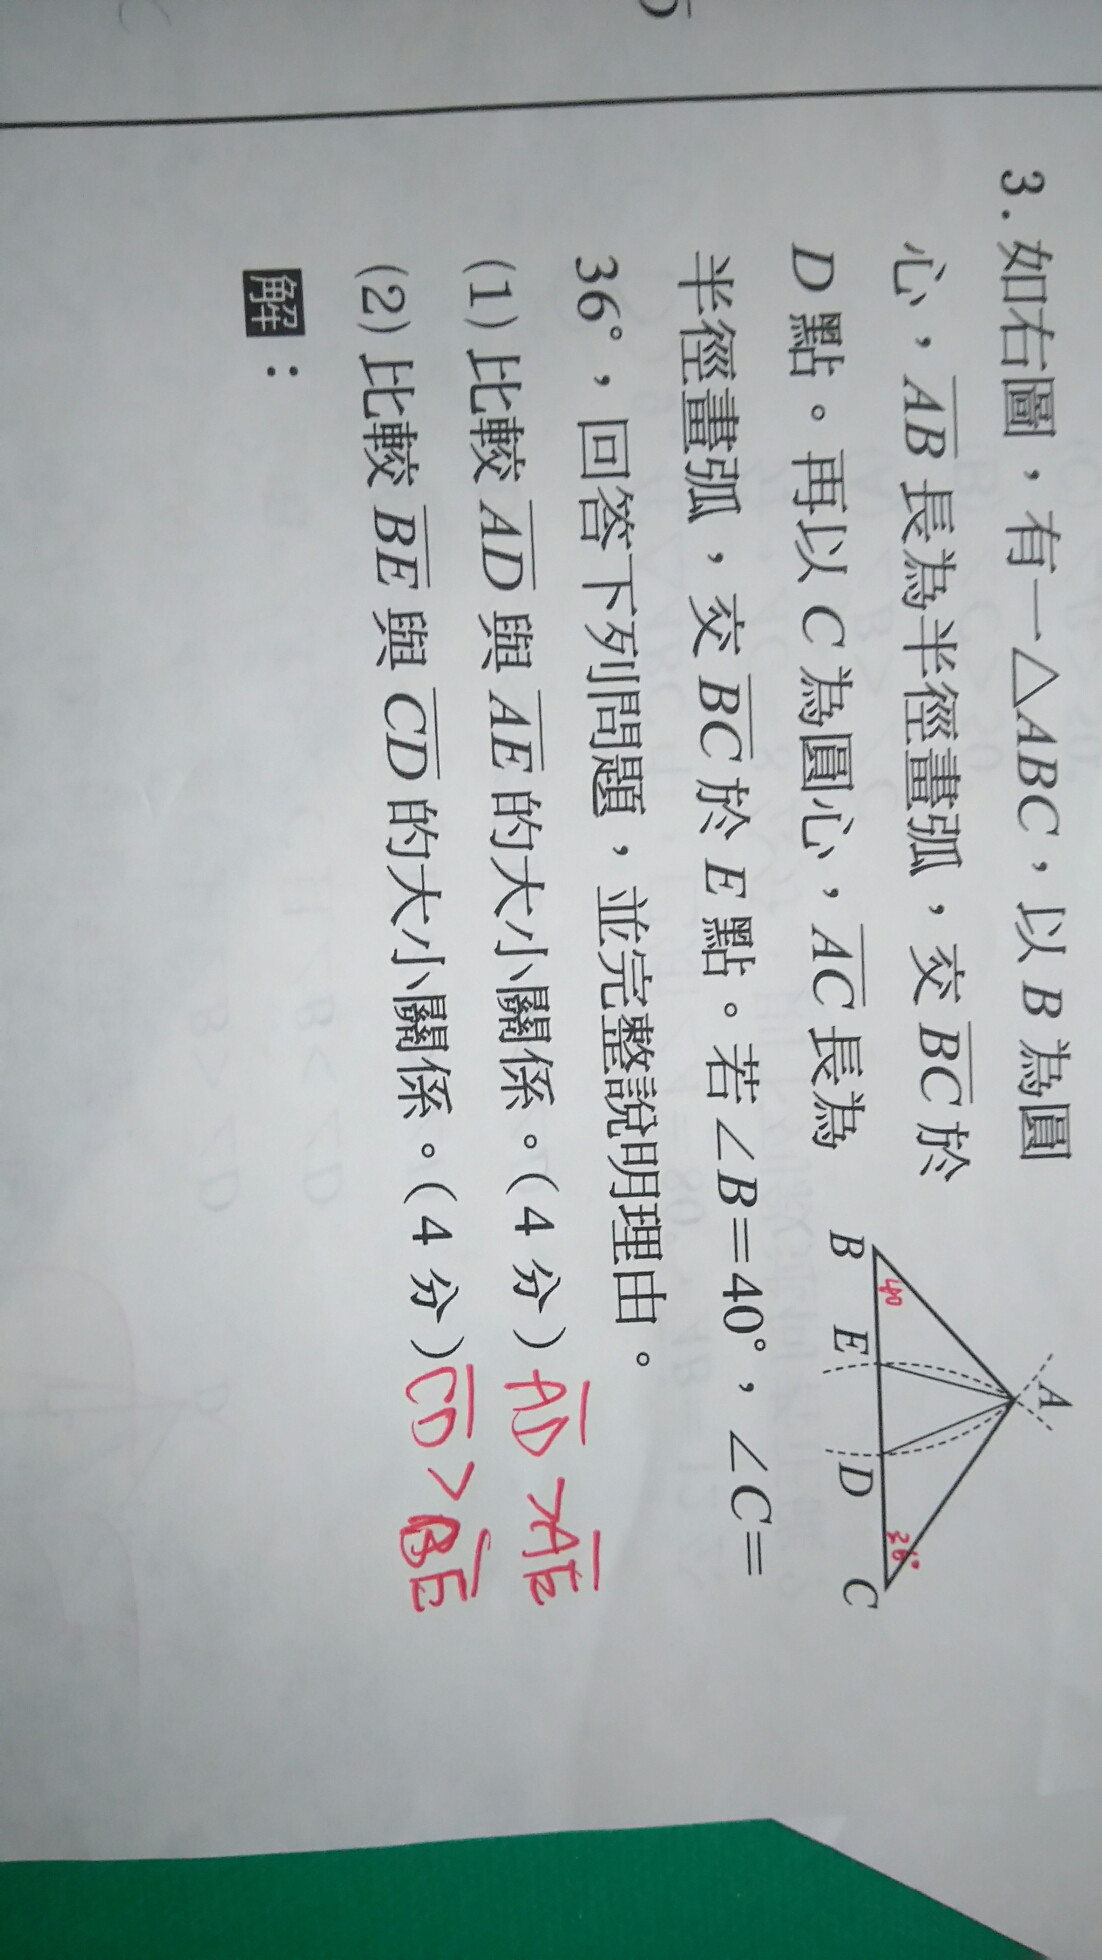 3. 如右圖，有一△ABC，以 B 為圓
心，AB 長為半徑畫弧，交 BC 於
D 點。再以 C 為圓心，AC 長為
半徑畫弧，交 BC 於 E 點。若 ∠B＝40°，∠C＝
36°，回答下列問題，並完整說明理由。
(1) 比較 AD 與 AE 的大小關係。(4 分) AD > AE
(2) 比較 BE 與 CD 的大小關係。(4 分) CD > BE
解：
A
B E D C
40
36°